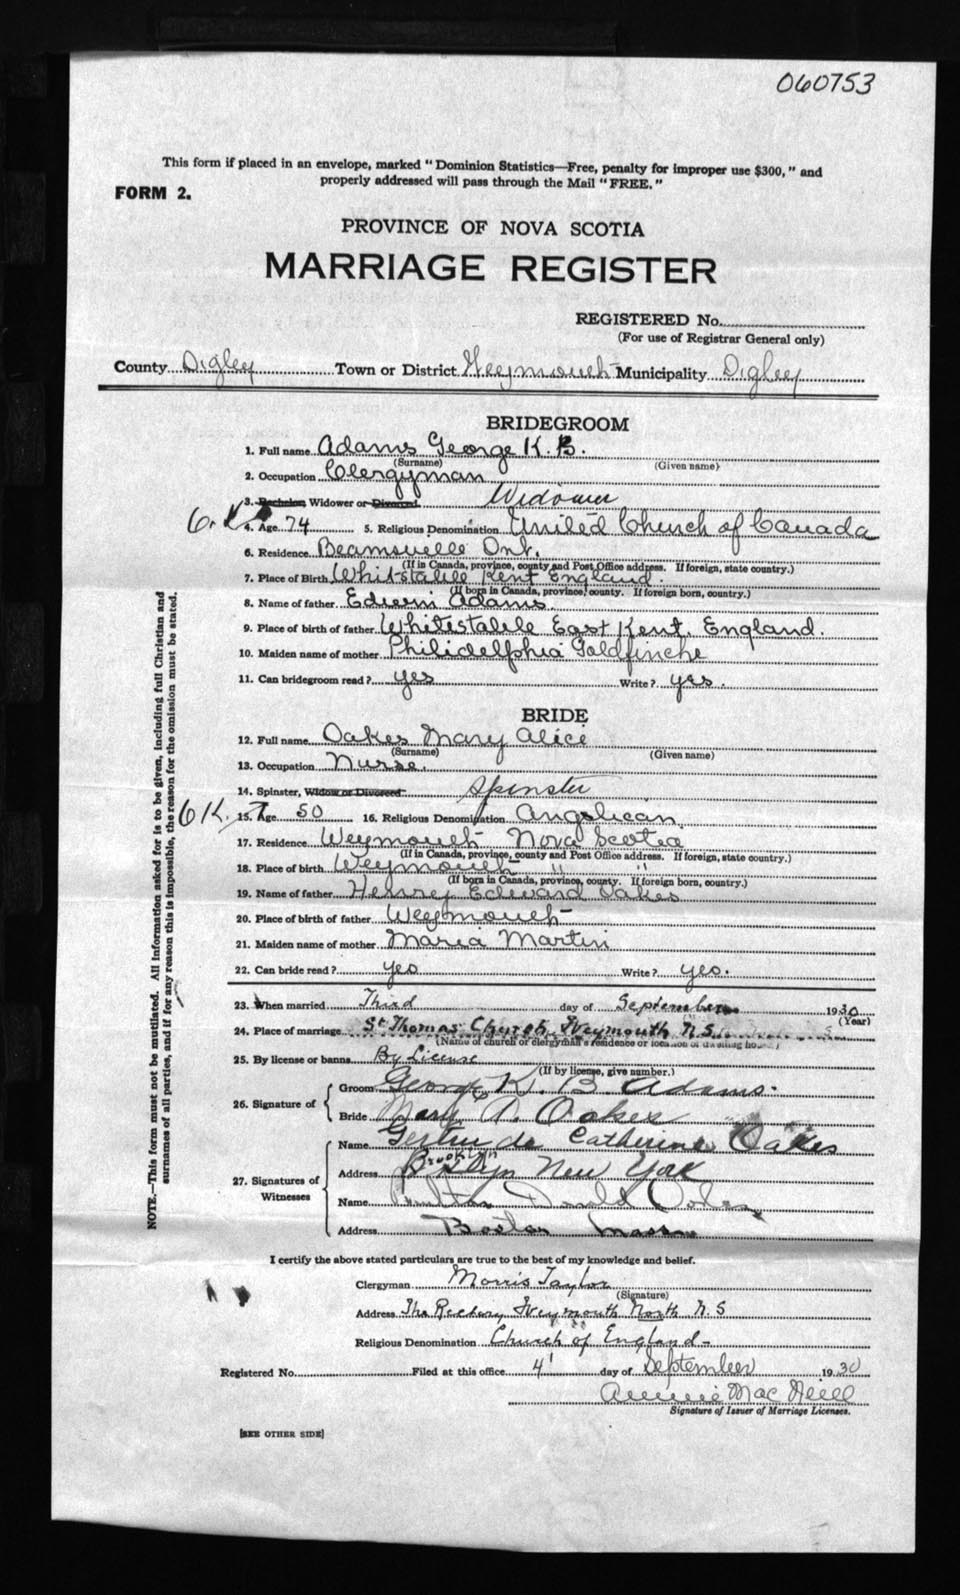 060753
This form if placed in an envelope, marked "Dominion Statistics—Free, penalty for improper use $300," and
properly addressed will pass through the Mail "FREE."
FORM 2.
PROVINCE OF NOVA SCOTIA
MARRIAGE REGISTER
REGISTERED No.
(For use of Registrar General only)
County Digby Town or District Weymouth Municipality Digby
BRIDEGROOM
1. Full name Adams George K. B.
(Surname) (Given name)
2. Occupation Clergyman
3. Bachelor Widower or Divorced Widower
4. Age 74 5. Religious Denomination United Church of Canada
6. Residence Beamsville Ont.
(If in Canada, province, county and Post Office address. If foreign, state country.)
7. Place of Birth Whitstable Kent England.
(If born in Canada, province, county. If foreign born, country.)
8. Name of father Edwin Adams.
9. Place of birth of father Whitistable East Kent. England.
10. Maiden name of mother Philidelphia Goldfinche
11. Can bridegroom read? yes Write? yes.
BRIDE
12. Full name Oakes Mary Alice
(Surname) (Given name)
13. Occupation Nurse.
14. Spinster, Widow or Divorced Spinster
6 K. 15. Age 50 16. Religious Denomination Anglican
17. Residence Weymouth Nova Scotia
(If in Canada, province, county and Post Office address. If foreign, state country.)
18. Place of birth Weymouth " "
(If born in Canada, province, county. If foreign born, country.)
19. Name of father Henry Edward Oakes
20. Place of birth of father Weymouth
21. Maiden name of mother Maria Martin
22. Can bride read? yes Write? yes.
23. When married Third day of September 1930
(Year)
24. Place of marriage St Thomas Church, Weymouth N.S.
(Name of church or clergyman's residence or location of dwelling house)
25. By license or banns By License
(If by license, give number.)
26. Signature of Groom George K. B. Adams.
Bride Mary A. Oakes
27. Signatures of Witnesses Name Gertrude Catherine Oakes
Address Brooklyn New York
Name Donald Oakes
Address Boston Mass
I certify the above stated particulars are true to the best of my knowledge and belief.
Clergyman Morris Taylor
(Signature)
Address The Rectory Weymouth North N.S
Religious Denomination Church of England
Registered No. Filed at this office 4 day of September 1930
Annie Mac Neill
Signature of Issuer of Marriage Licenses.
[SEE OTHER SIDE]
NOTE.—This form must not be mutilated. All information asked for is to be given, including full Christian and
surnames of all parties, and if for any reason this is impossible, the reason for the omission must be stated.